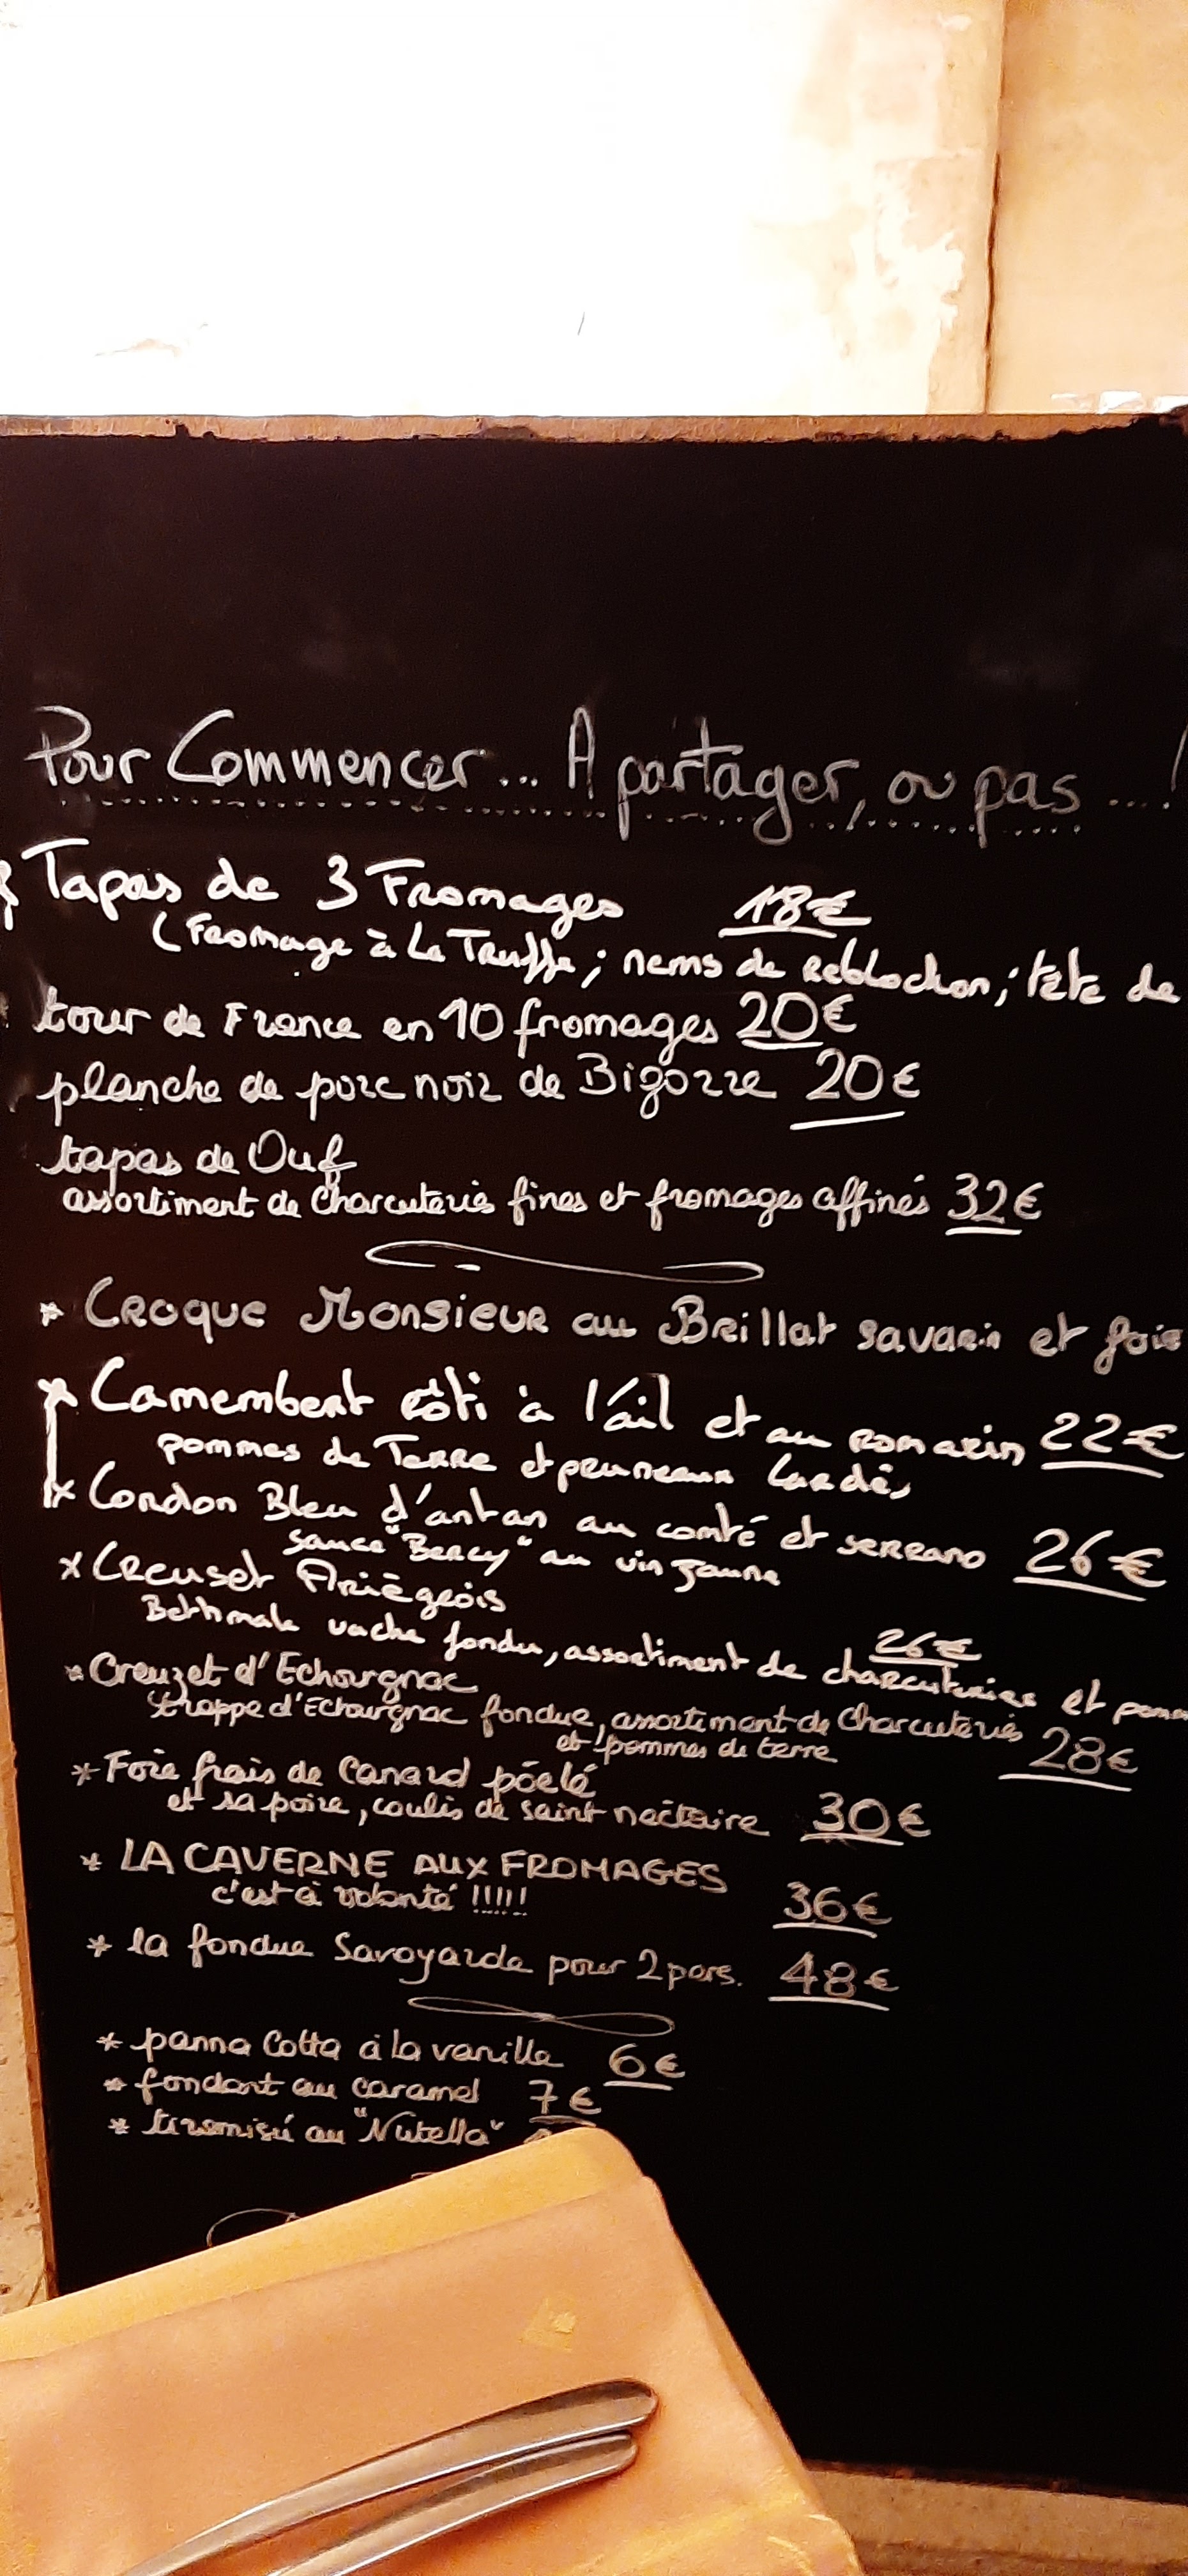 Pour Commencer... A partager, ou pas ...!
Tapas de 3 Fromages 18€
(Fromage à La Truffe; nems de reblochon; tête de
tour de France en 10 fromages 20€
planche de porc noir de Bigorre 20€
tapas de Ouf
assortiment de Charcuteries fines et fromages affinés 32€
* Croque Monsieur au Brillat savarin et foie
* Camembert rôti à l'ail et au romarin 22€
pommes de Terre et pruneaux lardés
* Cordon Bleu d'antan au comté et serrano 26€
sauce "Bercy" au vin jaune
* Creuset Ariègeois
Bethmale vache fondu, assortiment de charcuteries et pom 26€
* Creuzet d'Echourgnac
trappe d'Echourgnac fondue, assortiment de Charcuteries
et pommes de terre 28€
* Foie frais de Canard pôelé
et sa poire, coulis de saint nectaire 30€
* LA CAVERNE AUX FROMAGES
c'est à volonté !!!!! 36€
* la fondue Savoyarde pour 2 pers. 48€
* panna Cotta à la vanille 6€
* fondant au caramel 7€
* tiramisú au "Nutella"